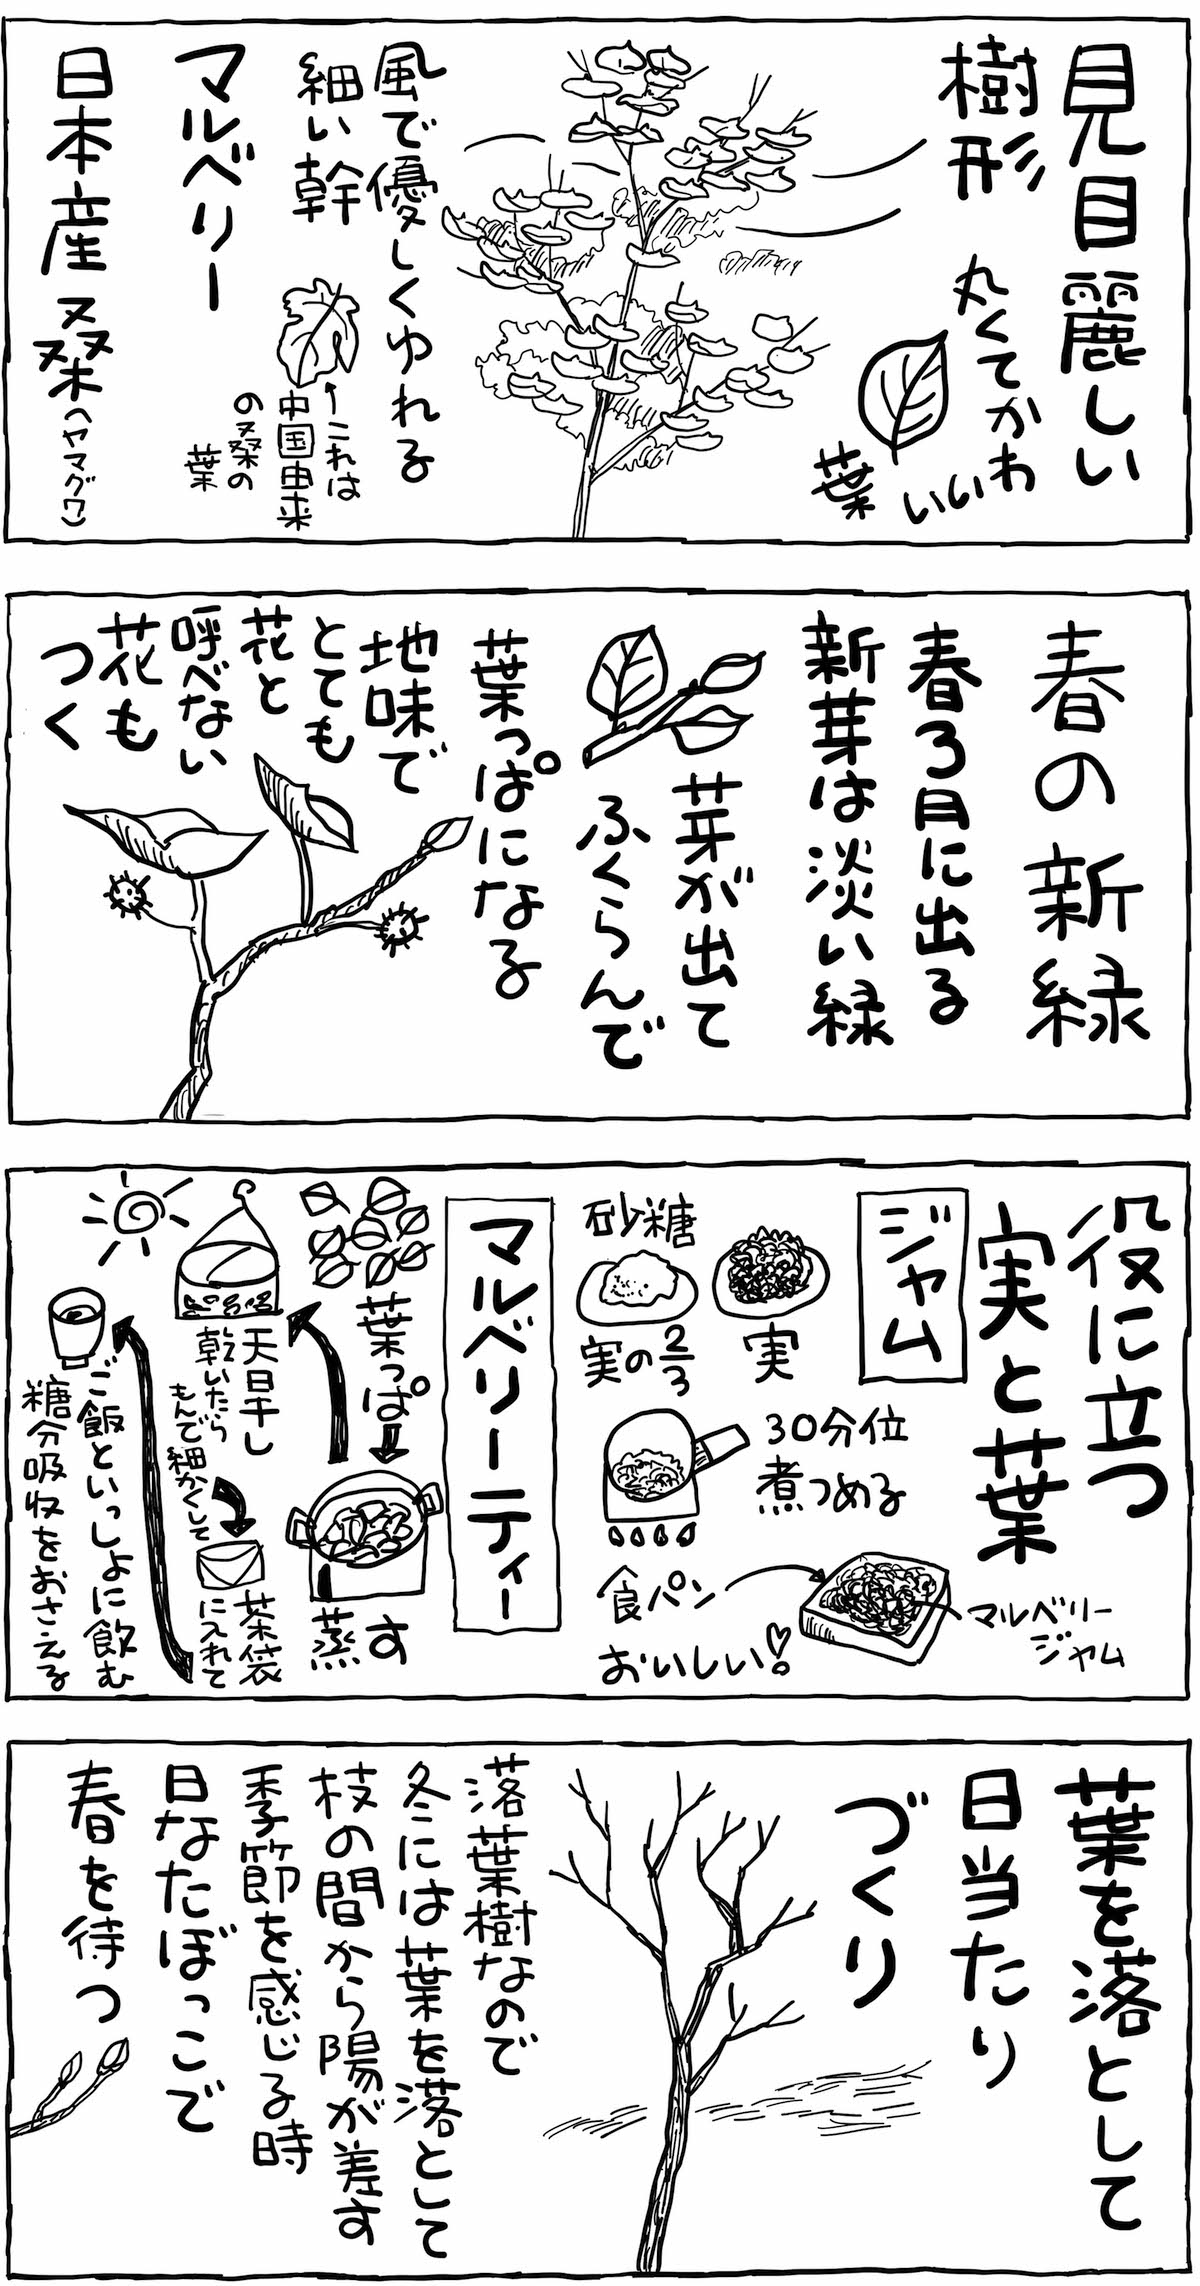 見目麗しい
樹形
丸くてかわ
いいい
葉
風で優しくゆれる
細い幹
←これは
中国由来
の桑の
葉
マルベリー
日本産桑(ヤマグワ)
春の新緑
春3月に出る
新芽は淡い緑
芽が出て
ふくらんで
葉っぱになる
地味で
とても
花と
呼べない
花も
つく
役に立つ
実と葉
ジャム
実
砂糖
実の2/3
30分位
煮つめる
食パン
おいしい!
マルベリー
ジャム
マルベリーティー
葉っぱ
蒸す
天日干し
乾いたら
もんで細かくして
茶袋
に入れて
ご飯といっしょに飲む
糖分吸収をおさえる
葉を落として
日当たり
づくり
落葉樹なので
冬には葉を落として
枝の間から陽が差す
季節を感じる時
日なたぼっこで
春を待つ